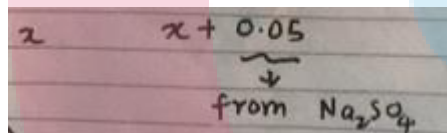 x x + 0.05
↓
from Na₂SO₄